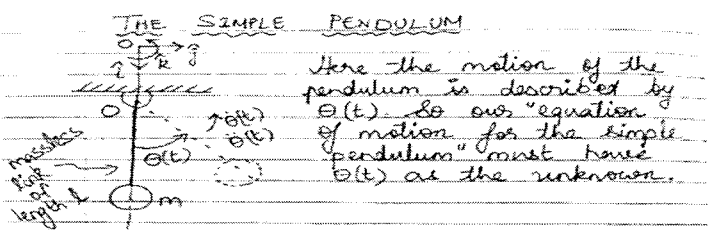 THE SIMPLE PENDULUM
O ĵ
î k̂
O
θ̇(t)
θ̈(t)
θ(t)
m
massless
link
of
length l
Here the motion of the
pendulum is described by
θ(t). So our "equation
of motion for the simple
pendulum" must have
θ(t) as the unknown.